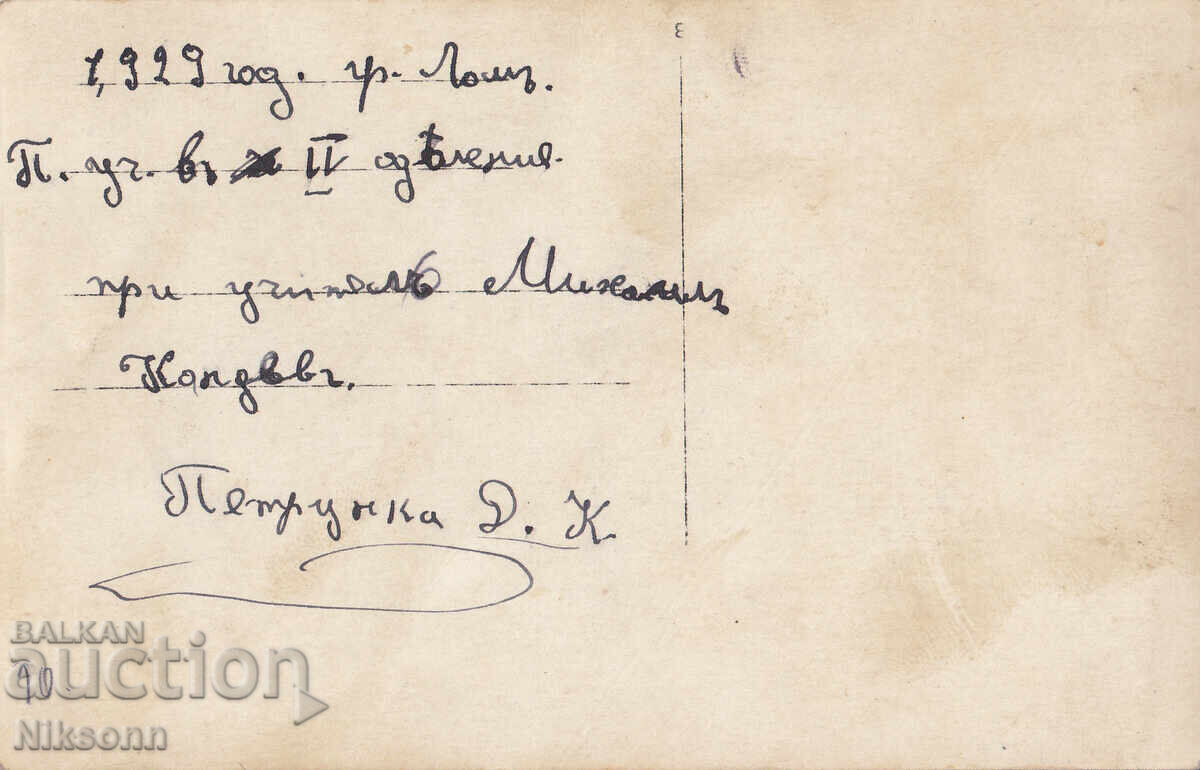 1929 год. гр. Ломъ.
П. уч. въ II одѣления
при учителъ Михаилъ
П. Д. К.
Петрунка Д. К.
BALKAN
auction
10
Niksonn